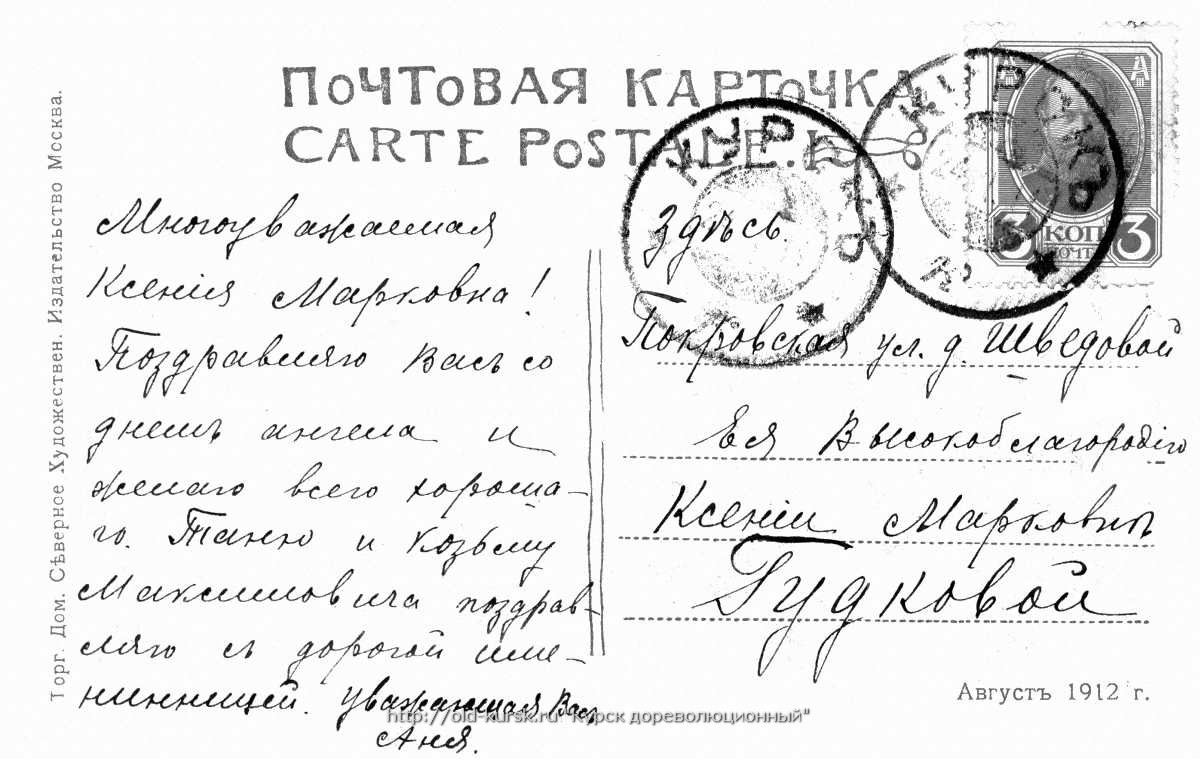 ПОЧТОВАЯ КАРТОЧКА
CARTE POSTALE.
Торг. Дом. Сѣверное Художествен. Издательство Москва.
Многоуважаемая
Ксенія Марковна!
Поздравляю Васъ со
днемъ ангела и
желаю всего хороша-
го. Таню и Козьму
Максимовича поздрав-
ляю съ дорогой име-
нинницей. Уважающая Васъ
Аня.
КУРСКЪ
КУРСКЪ
3 КОП 3
ПОЧТ
Здѣсь.
Покровская ул. д. Шведовой
Ея Высокоблагородію
Ксеніи Марковнѣ
Гудковой
Августъ 1912 г.
http://old-kursk.ru "Курск дореволюционный"